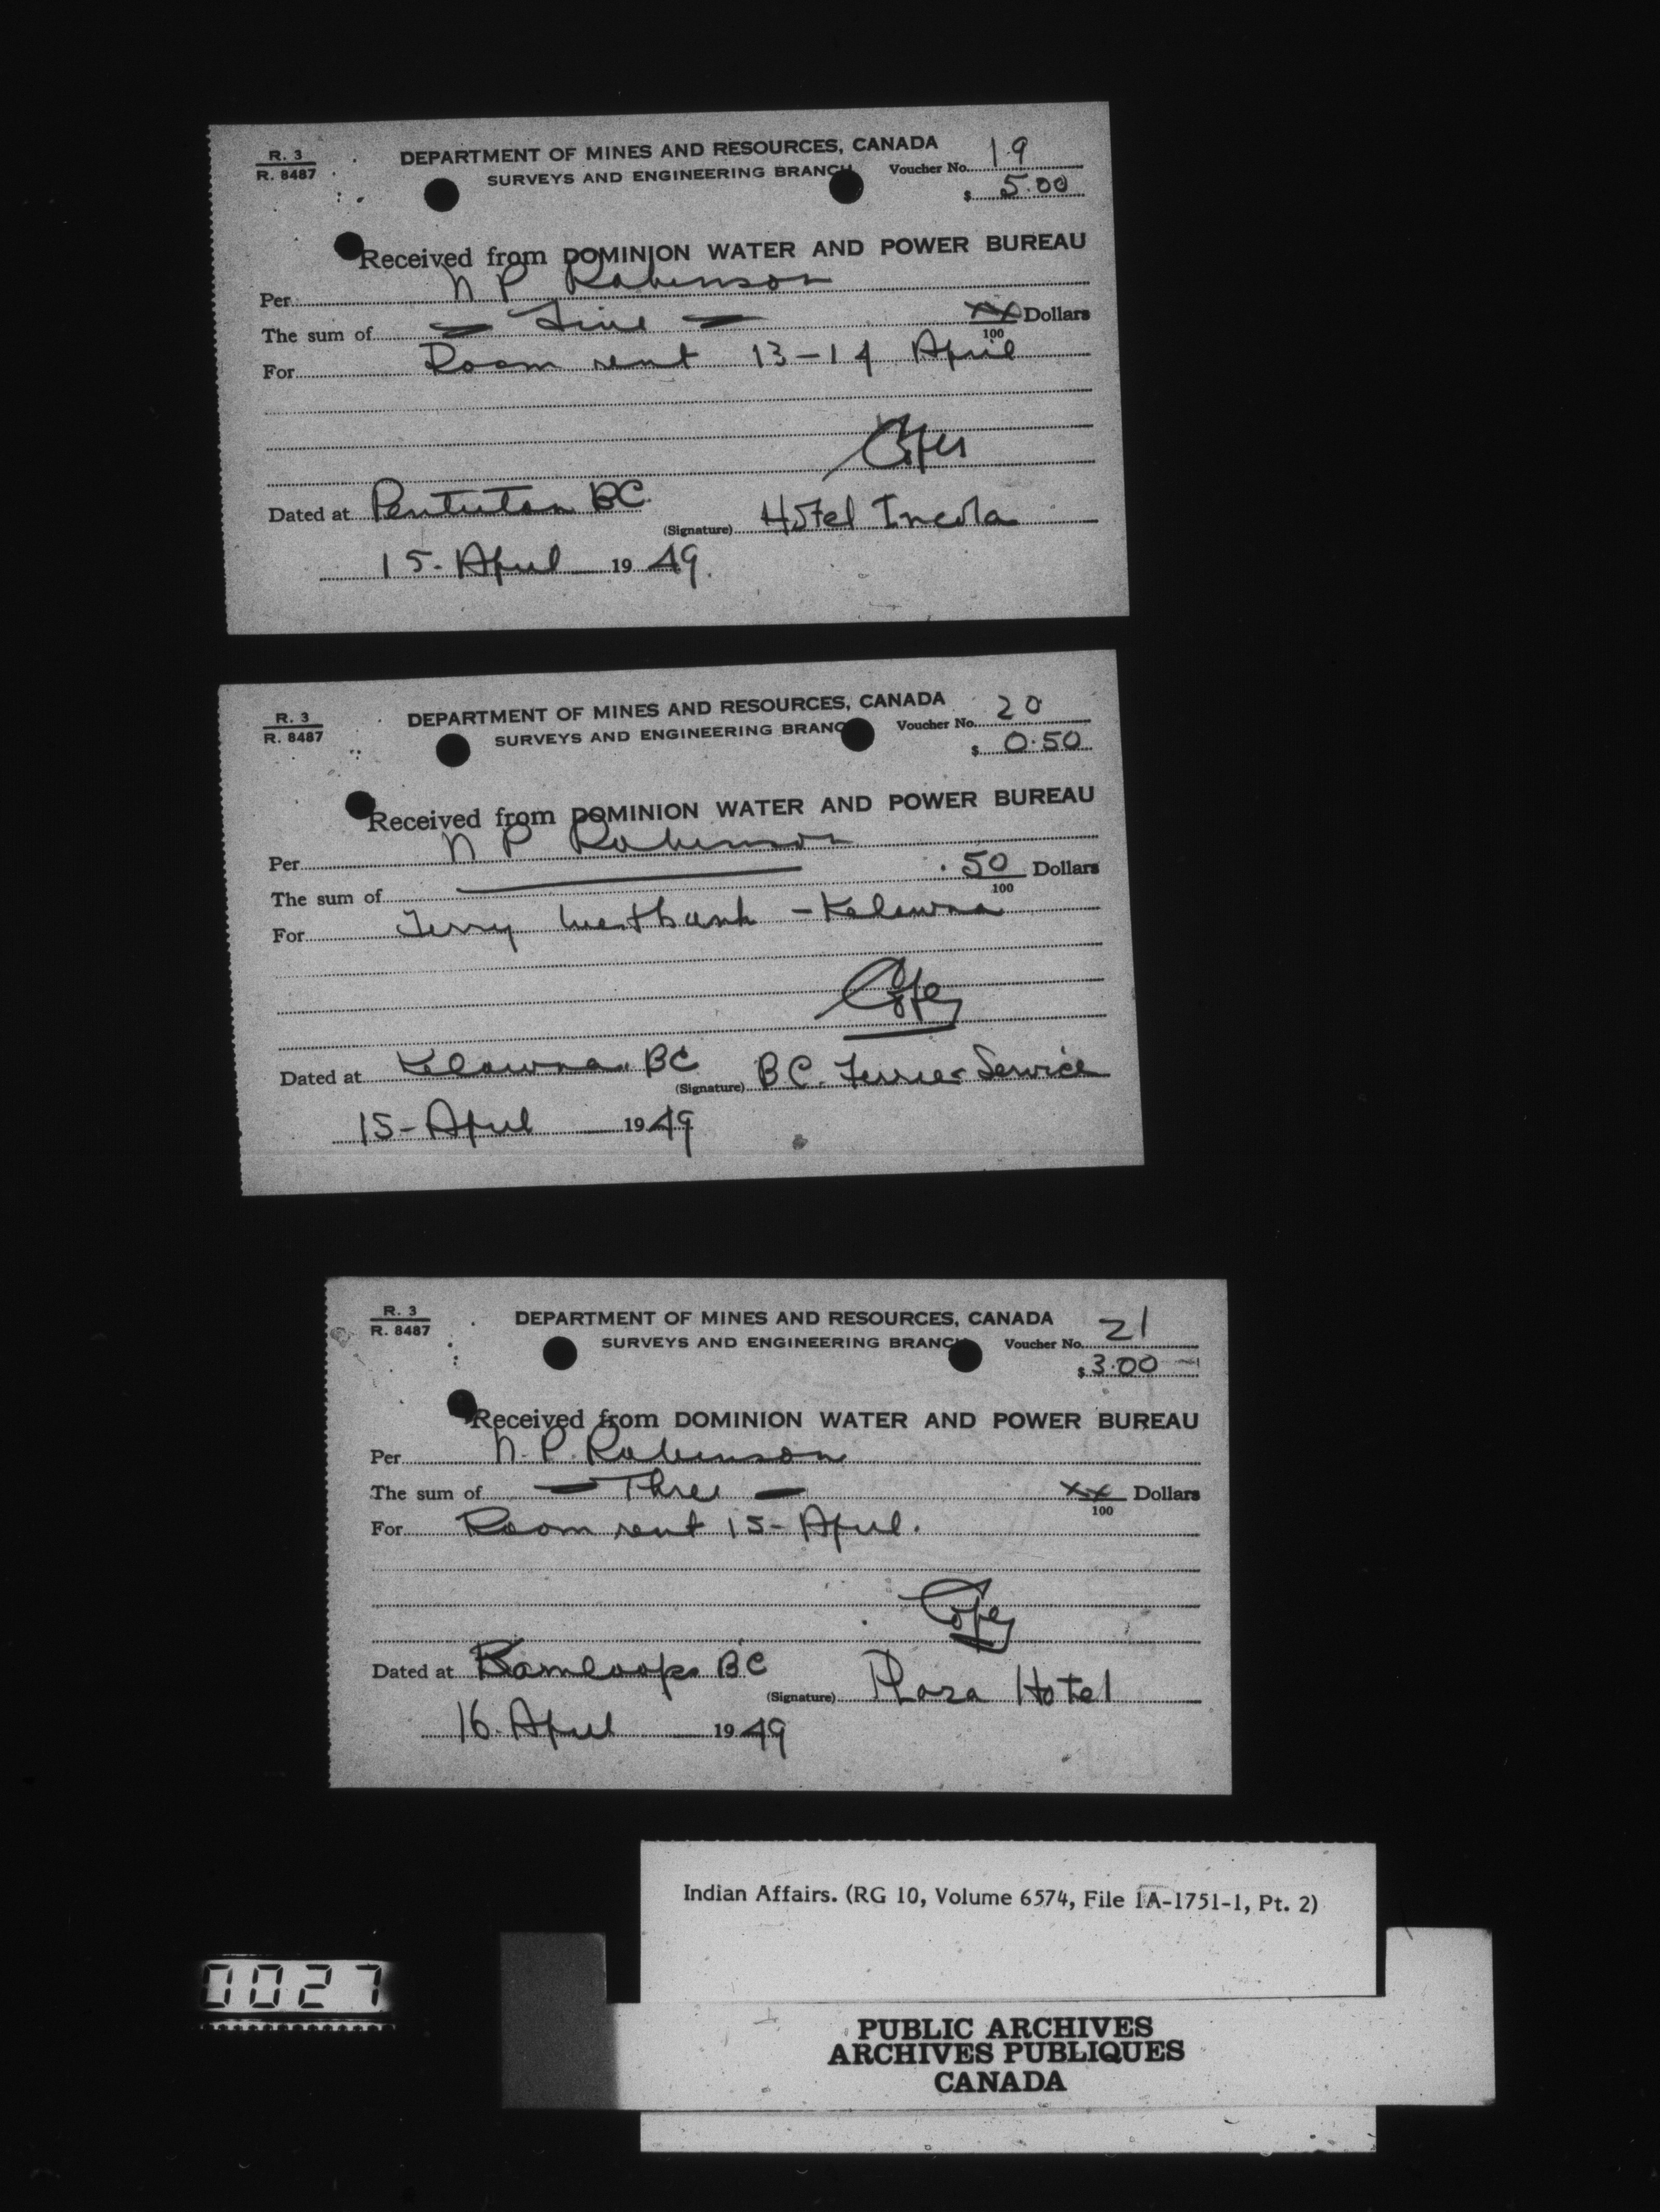 R. 3
R. 8487
DEPARTMENT OF MINES AND RESOURCES, CANADA
SURVEYS AND ENGINEERING BRANCH
Voucher No. 19
$ 5.00
Received from DOMINION WATER AND POWER BUREAU
Per N P Robinson
The sum of — Five — xx/100 Dollars
For Room rent 13-14 April
Copy
Dated at Penticton BC.
(Signature) Hotel Incola
15-April 1949.
R. 3
R. 8487
DEPARTMENT OF MINES AND RESOURCES, CANADA
SURVEYS AND ENGINEERING BRANCH
Voucher No. 20
$ 0.50
Received from DOMINION WATER AND POWER BUREAU
Per N P Robinson
The sum of .50/100 Dollars
For Ferry Westbank - Kelowna
Copy
Dated at Kelowna, BC
(Signature) B.C. Ferries Service
15-April 1949
R. 3
R. 8487
DEPARTMENT OF MINES AND RESOURCES, CANADA
SURVEYS AND ENGINEERING BRANCH
Voucher No. 21
$ 3.00
Received from DOMINION WATER AND POWER BUREAU
Per N. P. Robinson
The sum of — Three — xx/100 Dollars
For Room rent 15-April.
Copy
Dated at Kamloops BC
(Signature) Plaza Hotel
16. April 1949
Indian Affairs. (RG 10, Volume 6574, File 1A-1751-1, Pt. 2)
0027
PUBLIC ARCHIVES
ARCHIVES PUBLIQUES
CANADA